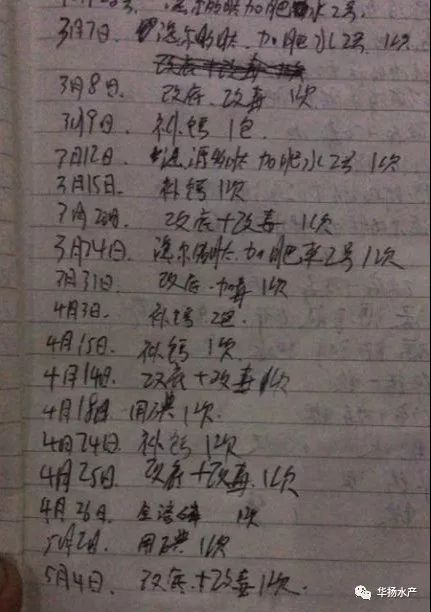 加肥水2号.
3月7日. 加肥水2号 1次
3月8日. 改底. 改毒 1次
3月9日. 补钙 1包
3月12日. 加肥水2号 1次
3月15日. 补钙 1次
改底+改毒 1次
3月24日. 加肥 2号 1次
3月31日. 改底. 1次
4月3日. 补钙 2包
4月15日. 补钙 1次
4月14日. 改底+改毒 1次
4月18日 用碘 1次
4月24日. 补钙 1次
4月25日. 改底+改毒. 1次
4月26日. 1次
5月2日. 用碘 1次
5月4日. 改底.+改毒 1次.
华扬水产